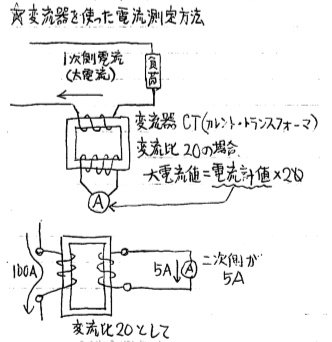 ☆変流器を使った電流測定方法
1次側電流
(大電流)
負荷
変流器 CT(カレント・トランスフォーマ)
変流比20の場合
大電流値=電流計値×20
A
100A
5A
A
二次側が
5A
変流比20として